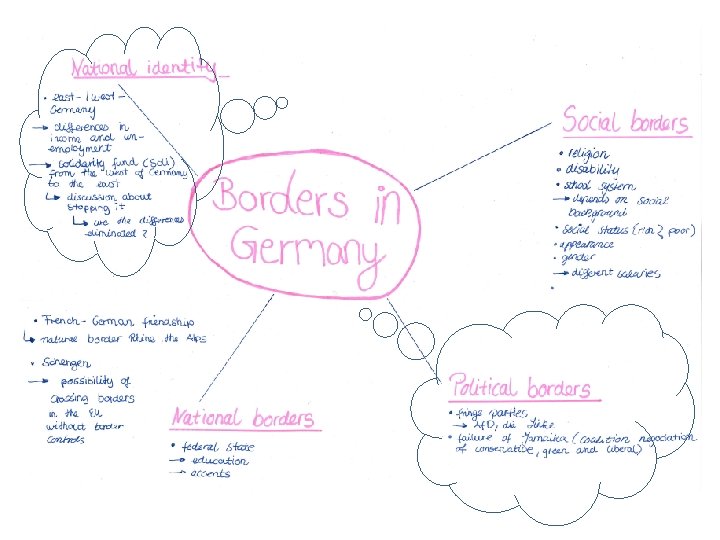 National identity
• east-/west-
Germany
→ differences in
icome and un-
employment
→ solidarity fund (Soli)
from the west of Germany
to the east
↳ discussion about
stopping it
↳ are the differences
eliminated?
Borders in
Germany
Social borders
• religion
• disability
• school system
→ depends on social
background
• social status (rich ? poor)
• appearance
• gender
→ different salaries
•
• French-German friendship
↳ natural border Rhine the Alps
• Schengen
→ possibility of
crossing borders
in the EU
without border
controls
National borders
• federal state
→ education
→ accents
Political borders
• fringe parties
→ AfD, die Linke
• failure of Jamaica (coalition negociation
of conservative, green and liberal)